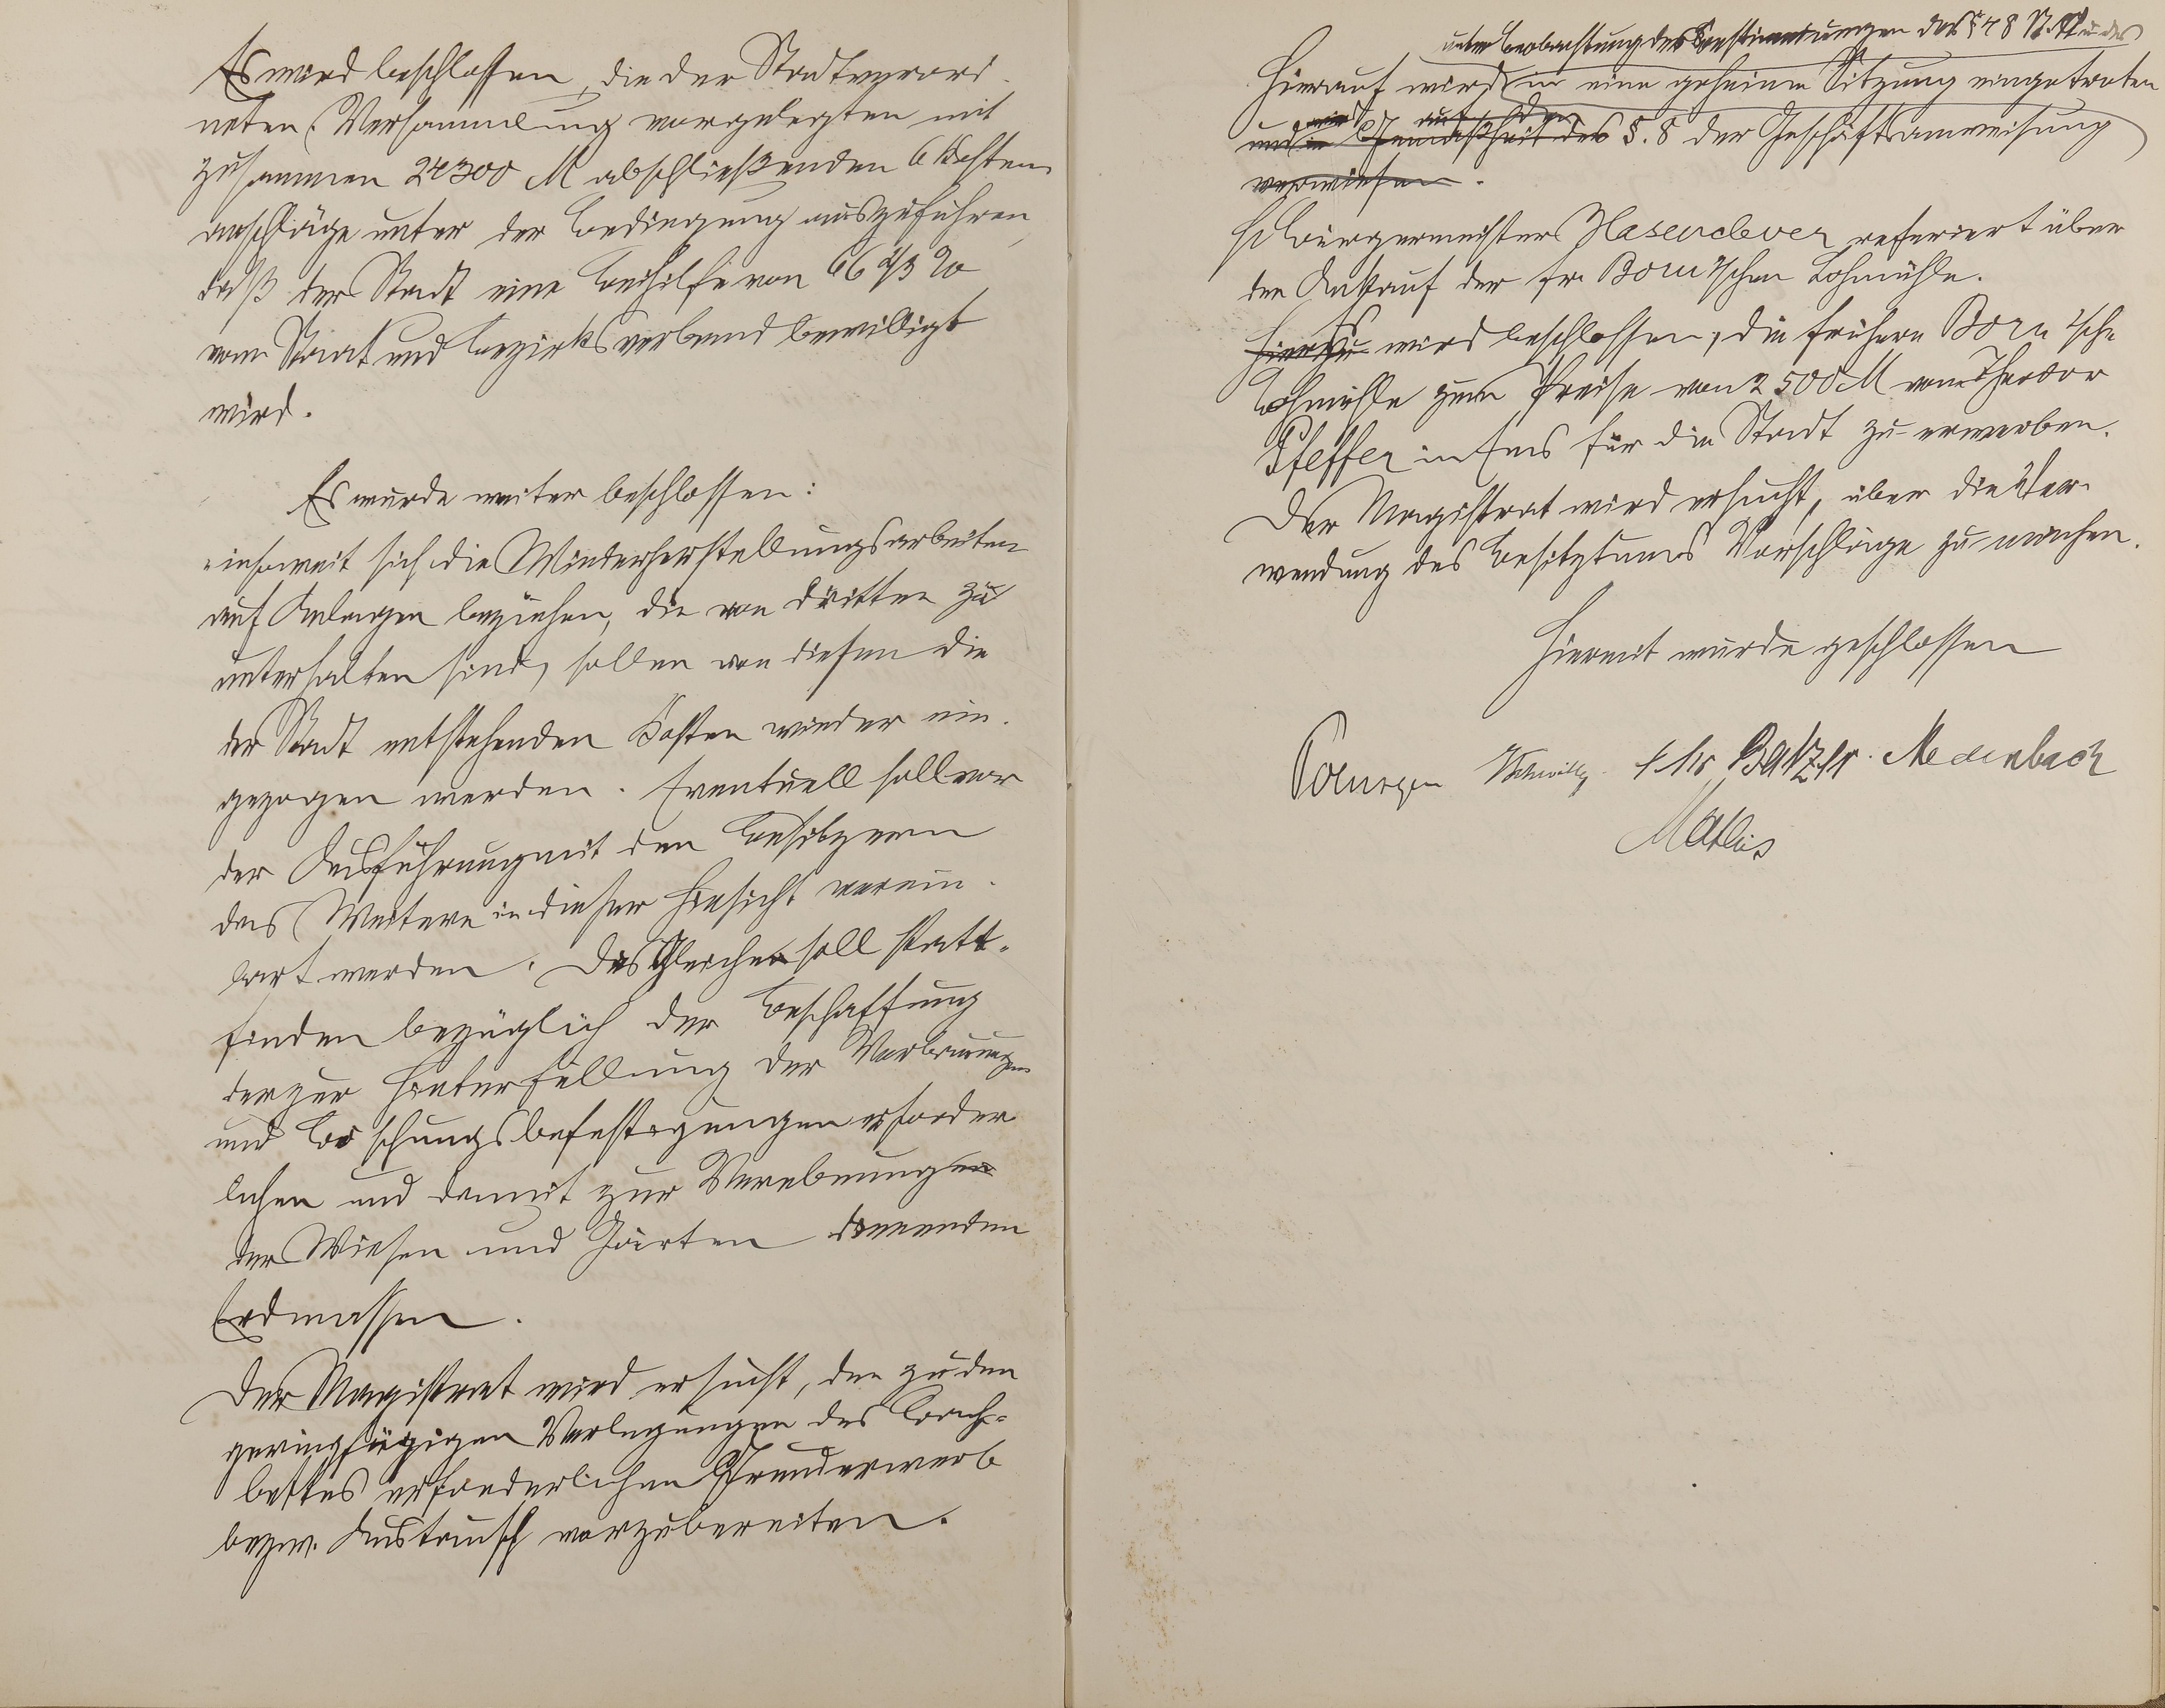 Es wird beschlossen, die der Stadtverord-
neten-Versammlung vorgelegten mit
zusammen 24300 M abschließenden 6 Kosten-
anschläge unter der Bedingung auszuführen,
daß der Stadt eine Beihilfe von 66 2/3 %
vom Staat und Bezirksverband bewilligt
wird.
Es wurde weiter beschlossen:
insoweit sich die Wiederherstellungsarbeiten
auf Anlagen beziehen, die von Dritten zu
unterhalten sind, sollen von diesen die
der Stadt entstehenden Kosten wieder ein-
gezogen werden. Eventuell soll vor
der Ausführung mit den Besitzern
das Weitere in dieser Hinsicht verein-
bart werden. Das Gleiche soll statt-
finden bezüglich der Beschaffung
der zur Hinterfüllung der Verbauungen
und Böschungsbefestigungen erforder
lichen und damit zur Verebnung
der Wiesen und Gärten dienenden
Erdmassen.
Der Magistrat wird ersucht, den zu den
geringfügigen Verlegungen des Bach-
bettes erforderlichen Grunderwerb
bezw. Austausch vorzubereiten.
unter Beobachtung der Bestimmungen des § 48 der
Hierauf wird in eine geheime Sitzung eingetreten
wird auf den
und in Gemäßheit des §. 8 der Geschäftsanweisung
verwiesen.
H Bürgermeister Hasenclever referiert über
den Ankauf der fr. Born'schen Lohmühle.
Es
Hierzu wird beschlossen, die frühere Born'sche
Lohmühle zum Preise von 2500 M von Theodor
Pfeffer in Ems für die Stadt zu erwerben.
Der Magistrat wird ersucht, über die Ver-
wendung des Besitztums Vorschläge zu machen.
Hiermit wurde geschlossen
Balzer Medenbach
Mathis